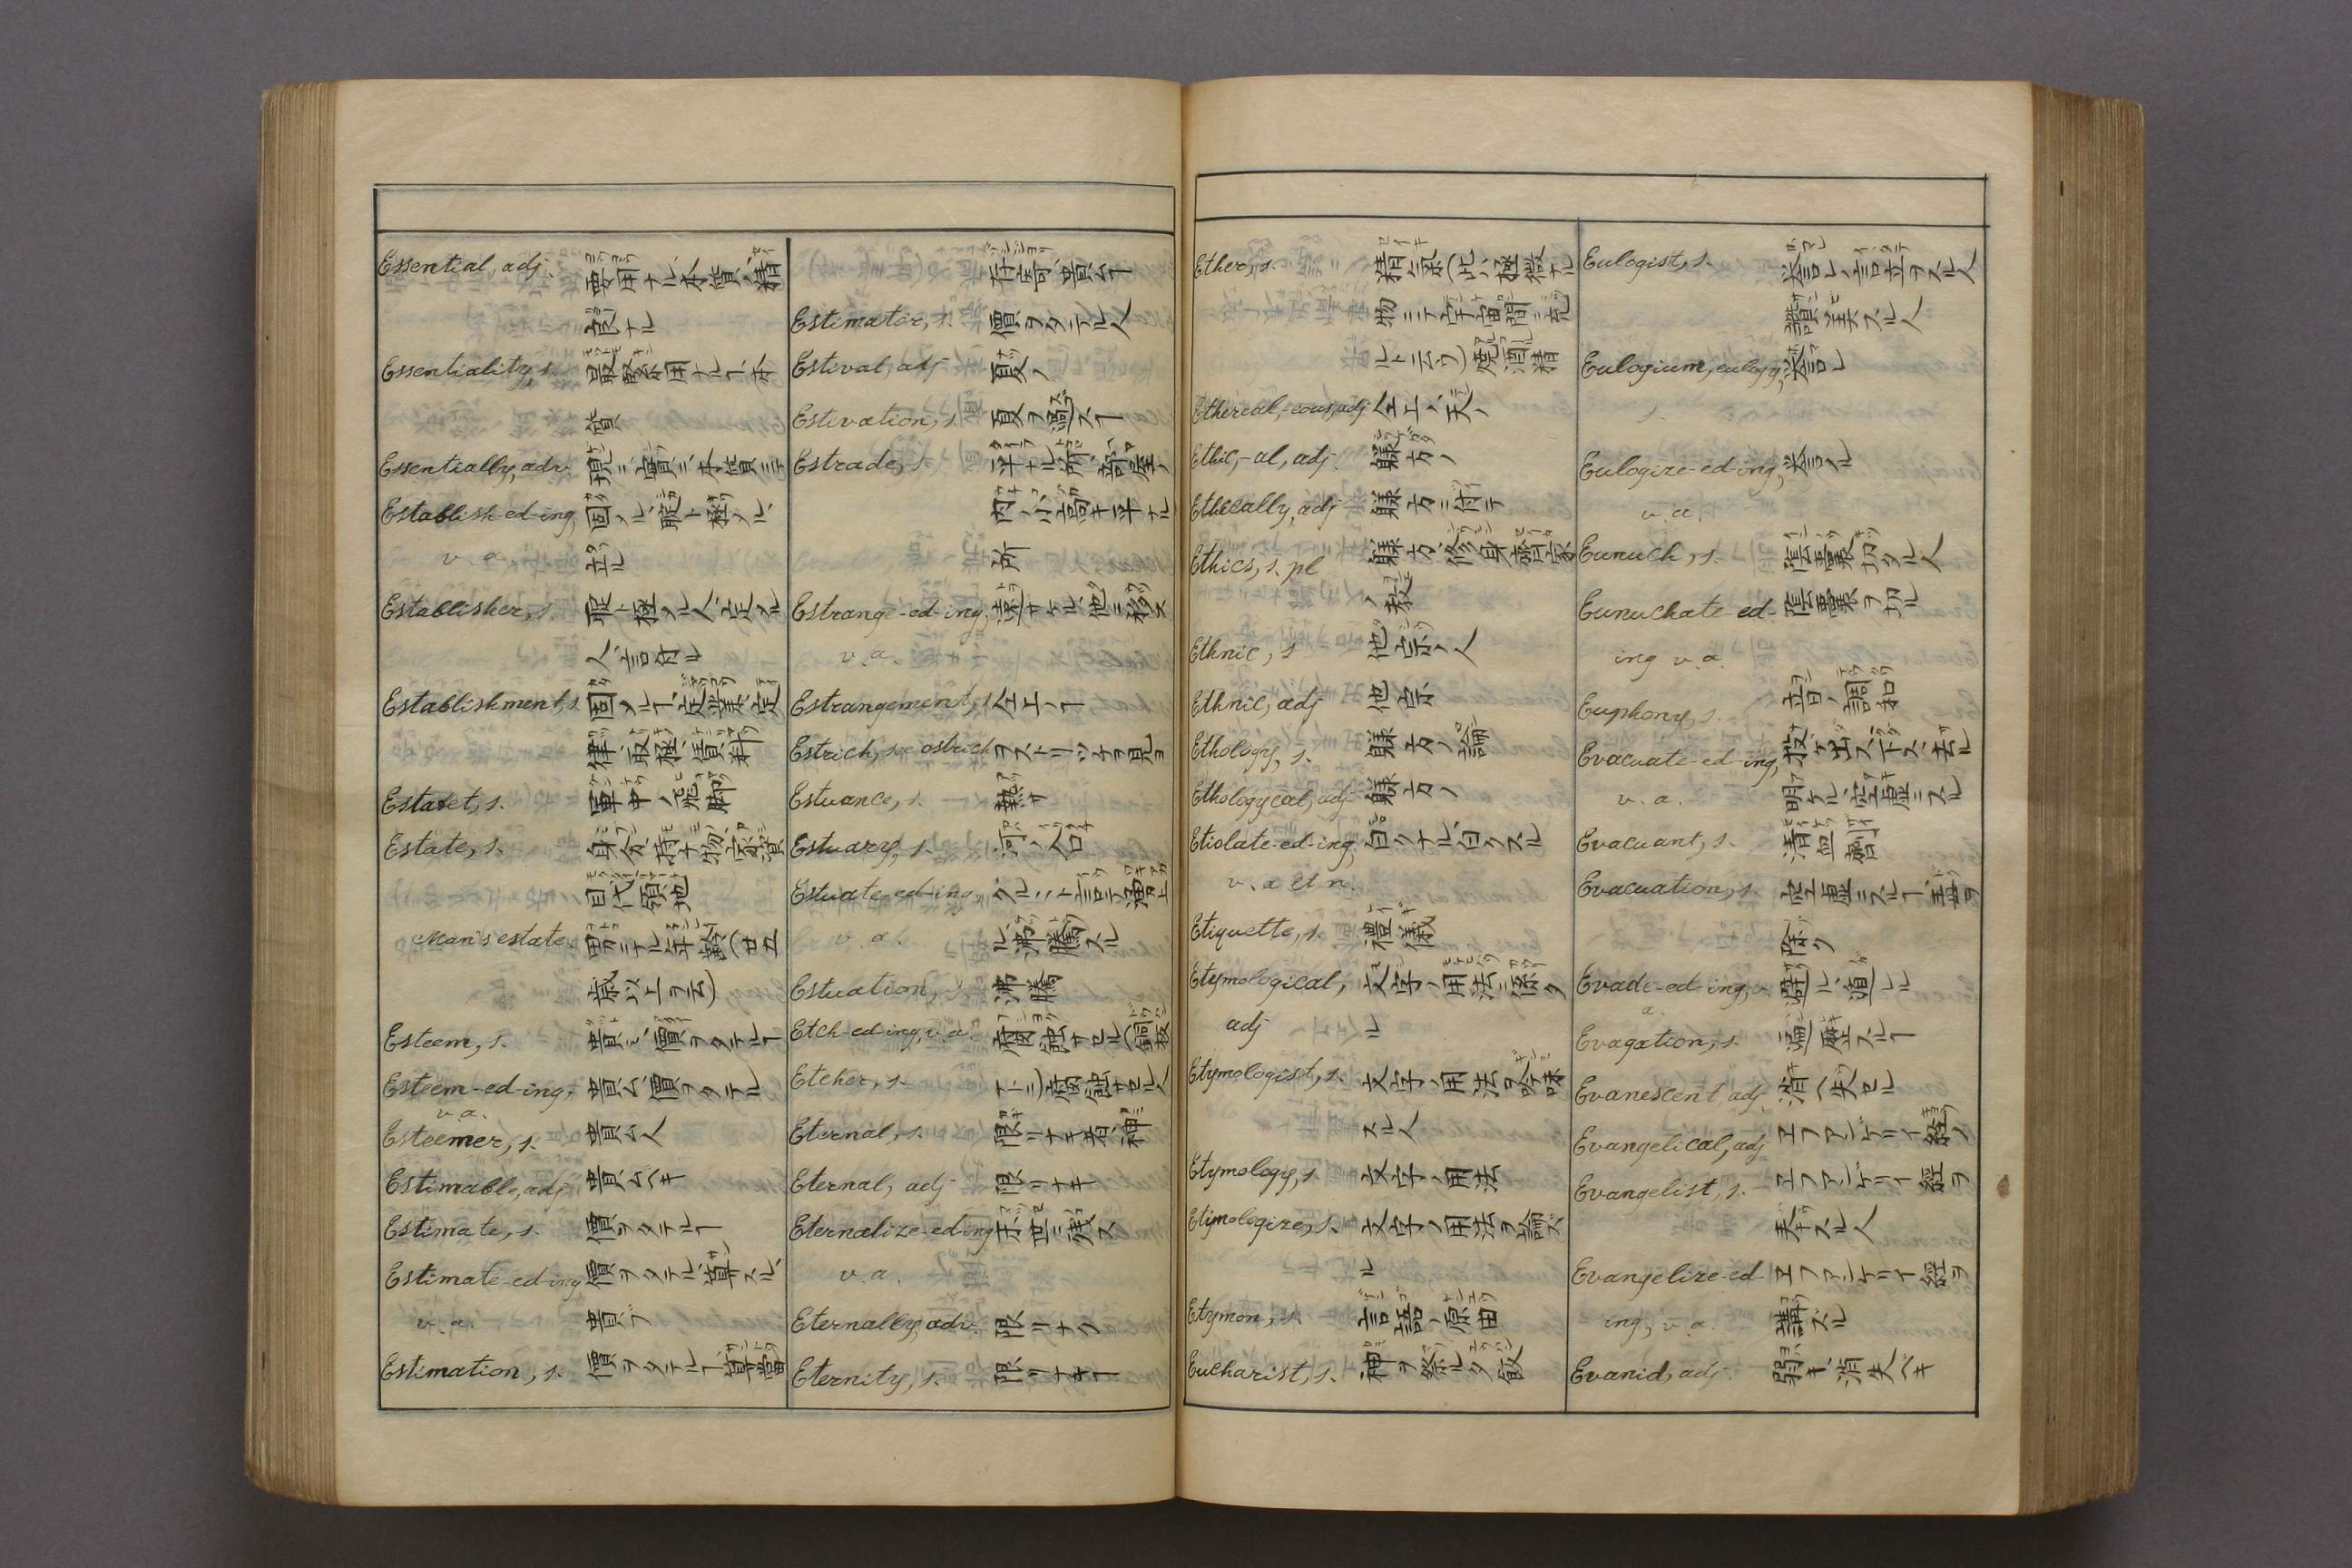 Essential, adj. 要用ナル、本質ノ、精
気ナル
Essentiality, s. 最緊用ナルヿ、本
質
Essentially, adv. 現ニ、實ニ、本質ニテ
Establish-ed-ing, 固メル、取極メル、
v. a. 立ル
Establisher, s. 取極メル人、定メル
人
Establishment, s. 固メルヿ、定業、定
律、取極、賃料
Estafet, s. 軍中ノ飛脚
Estate, s. 身分、持チ物、家資
目代領地
Man's estate. 男ニナル年齢(廿五
歳以上ヲ云)
Esteem, s. 貴ミ、價ヲタテルヿ
Esteem-ed-ing, 貴ム、價ヲタテル
v. a.
Esteemer, s. 貴ム人
Estimable, adj 貴ムヘキ
Estimate, s. 價ヲタテルヿ
Estimate-ed-ing 價ヲタテル、算スル、
v. a. 貴ブ
Estimation, s. 價ヲタテルヿ、算當
存寄、貴ムヿ
Estimator, s. 價ヲタテル人
Estival, adj 夏ノ
Estivation, s. 夏ヲ過スヿ
Estrade, s. 平ナル所、部屋ノ
内ノ小高キ平ナル
所
Estrange-ed-ing, 遠サケル、他ニ移ス
v. a.
Estrangement, s 仝上ノヿ
Estrich, see ostrich ヲストリッチヲ見ヨ
Estuance, s. 熱サ
Estuary, s. 河ノ入口
Estuate-ed-ing, 涌上
v. a. ル、沸騰スル
Estuation, s. 沸騰
Etch-ed-ing, v. a. 腐蝕サセル(銅板
Etcher, s. 腐蝕サセル人
Eternal, s. 限リナキ者、神
Eternal, adj 限リナキ
Eternalize-ed-ing 不世ニ残ス
v. a.
Eternally, adv. 限リナク
Eternity, s. 限リナキヿ
Ether, s. 精氣(此ハ極微ナル
物ニテ宇宙間ニ充
ルト云フ)
Ethereal,-eous, adj 仝上ノ、天ノ
Ethic,-al, adj 躾方ノ
Ethically, adj 躾方ニ付テ
Ethics, s. pl 躾方、修身齊家
ノ教
Ethnic, s 他宗ノ人
Ethnic, adj 他宗
Ethology, s. 躾方ノ論
Ethologycal, adj 躾方ノ
Etiolate-ed-ing, 白クナル、白クスル
v. a et n.
Etiquette, s. 禮儀
Etymological, 文字ノ用法ニ係ク
adj ル
Etymologist, s. 文字ノ用法ヲ吟味
スル人
Etymology, s. 文字ノ用法
Etimologize, s. 文字ノ用法ヲ論ズ
ル
Etymon, s. 言語ノ原由
Eucharist, s. 神ヲ祭ル夕飯
Eulogist, s. 譽レノ言立ヲスル人
讃美スル人
Eulogium, eulogy, 譽レ
s.
Eulogize-ed-ing, 譽ル
v. a
Eunuch, s. 陰嚢切タル人
Eunuchate-ed- 陰嚢ヲ切ル
ing v. a.
Euphony, s. 音ノ調和
Evacuate-ed-ing, 投ケ出ス、下ス、去ル
v. a. 明ケル、空虚ニスル
Evacuant, s. 清血劑
Evacuation, s. 空虚ニスルヿ
除ク
Evade-ed-ing, v. 避ル、遁レル
a.
Evagation, s. 遍歴スルヿ
Evanescent adj 消へ失セル
Evangelical, adj エファンゲリイ經ノ
Evangelist, s. エファンゲリイ經ヲ
人
Evangelize-ed- エファンゲリイ經ヲ
ing, v. a. 講ズル
Evanid, adj. 弱キ、消失ヘキ